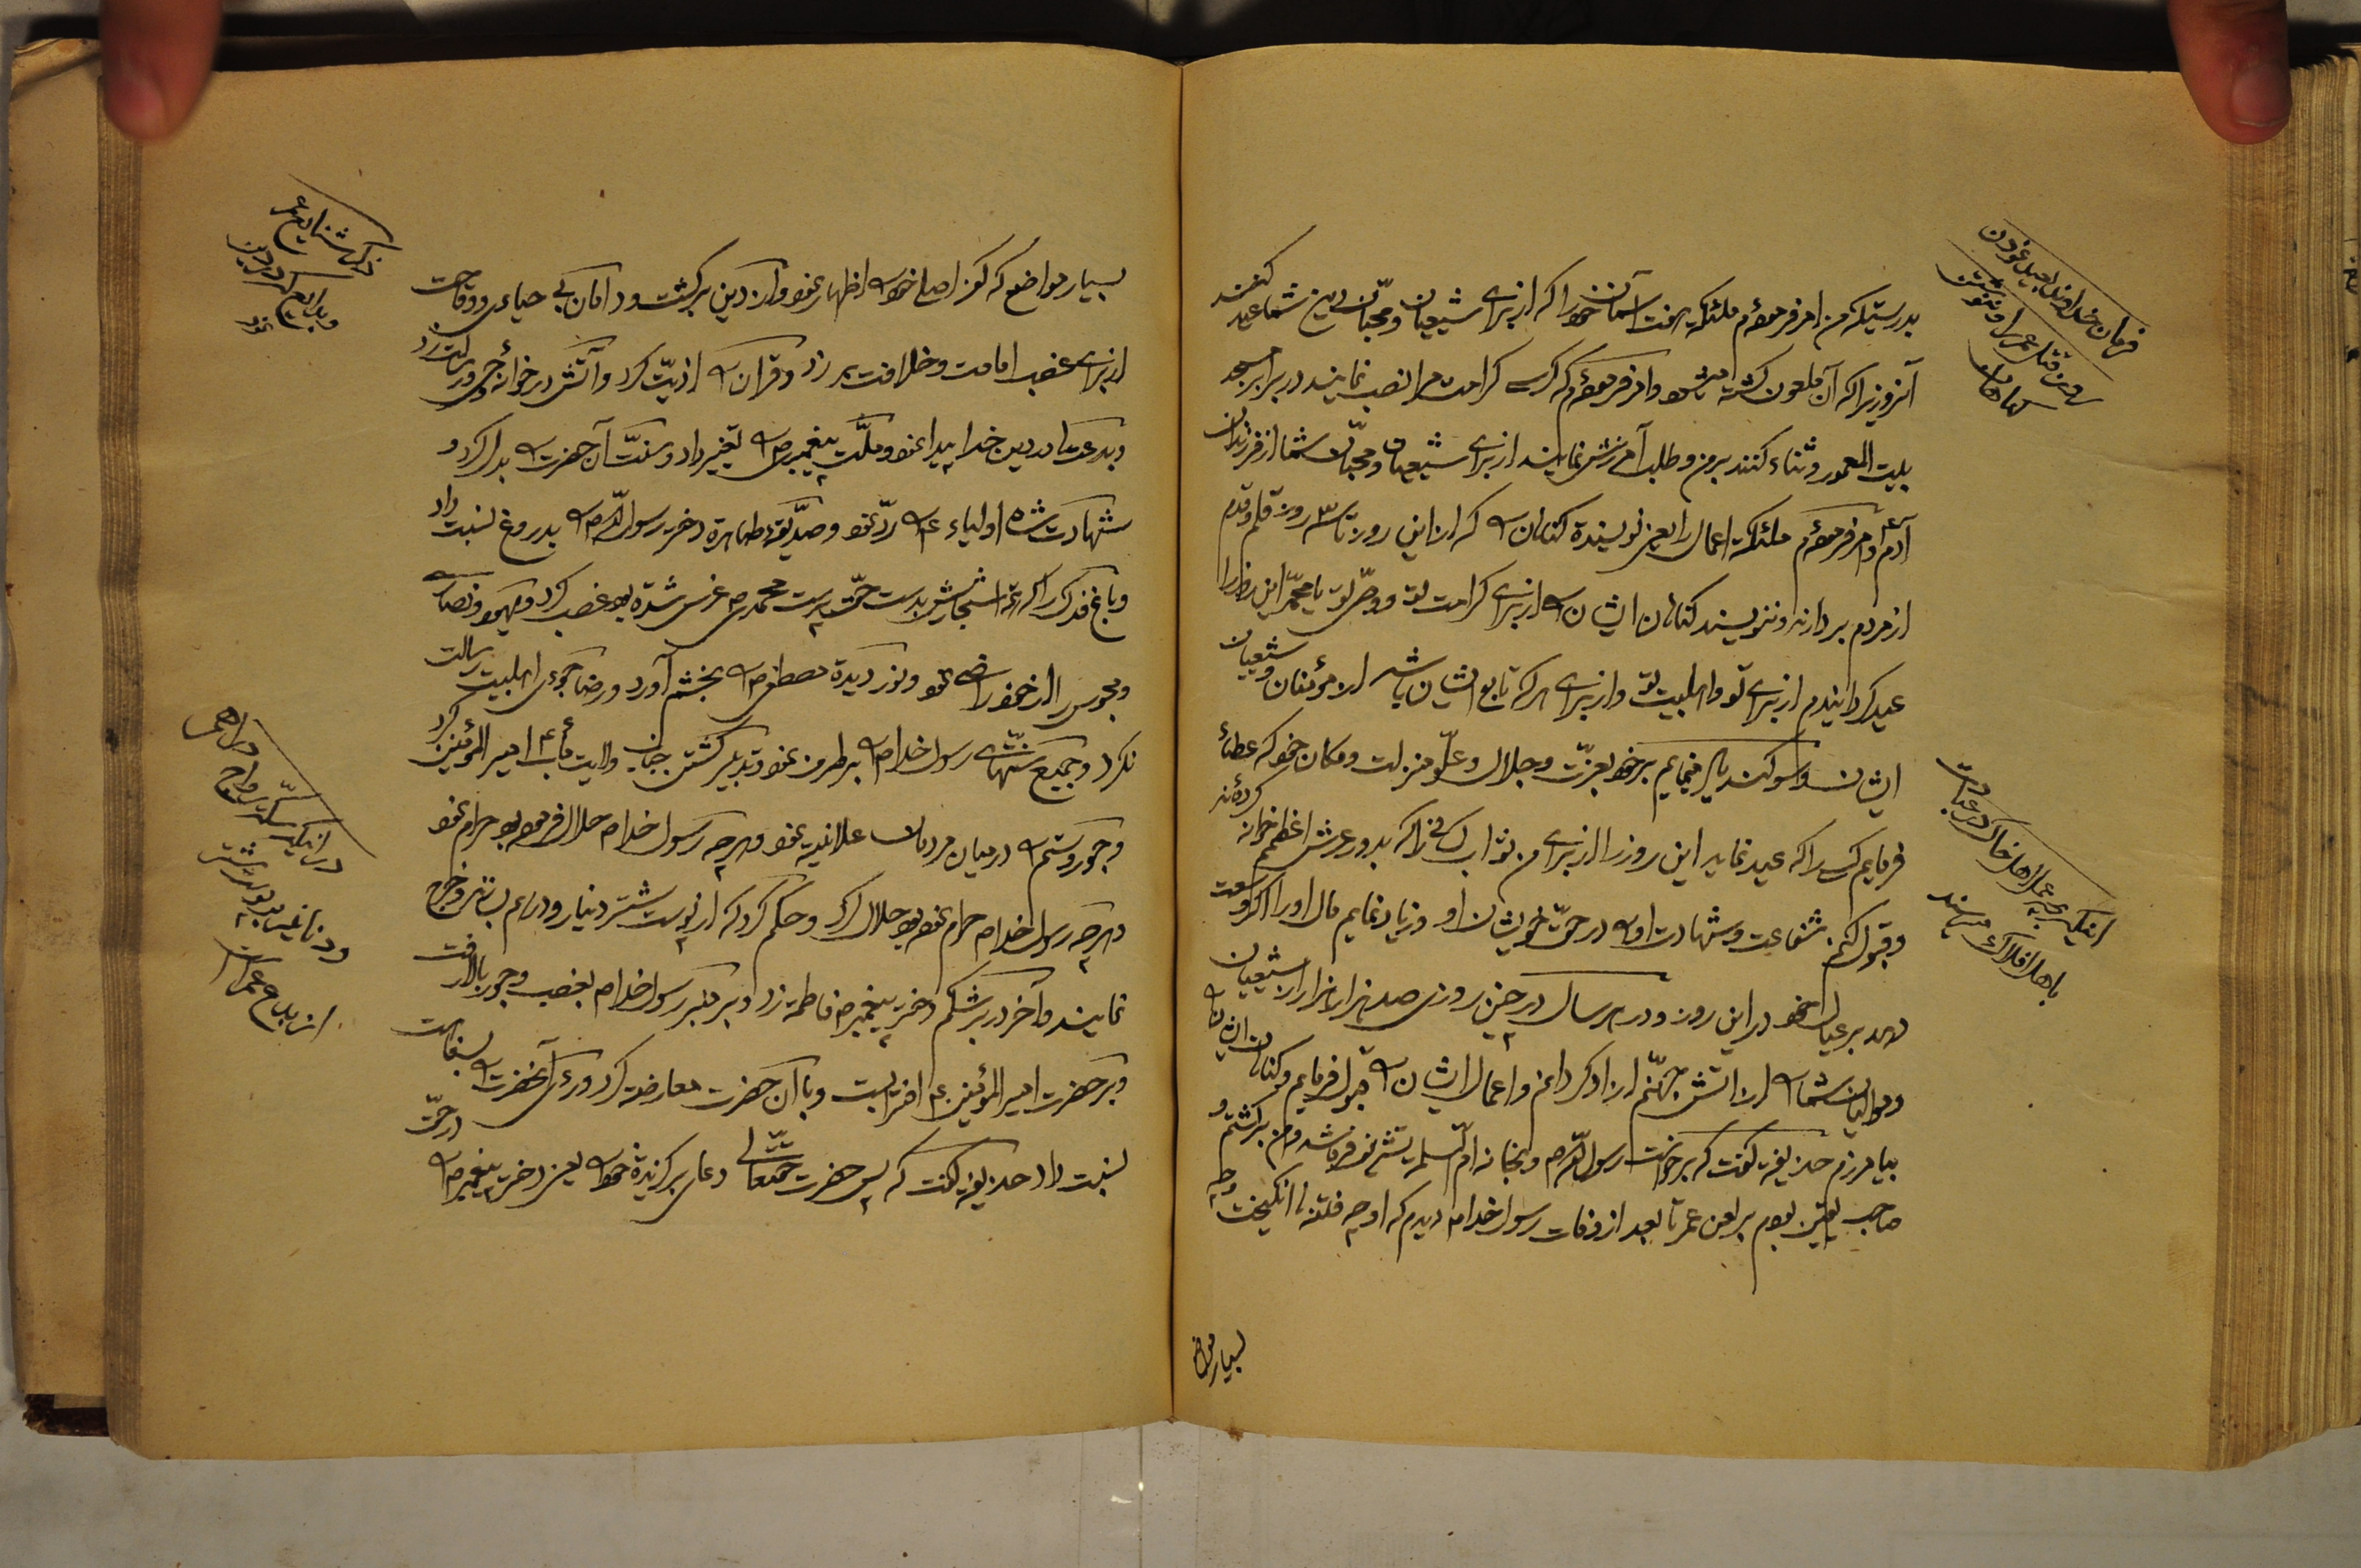 بدرستیکه من امر فرموده‌ام ملئکهٔ هفت آسمان خود را که از برای شیعیان و محبّان دین شما عید کنند
آنروزیرا که آن ملعون کشته میشود و امر فرموده‌ام که کرسی کرامت مرا نصب نمایند در برابر مسجد
بیت المعمور و ثناء کنند بر من و طلب آمرزش نمایند از برای شیعیان و محبّان شما از فرزندان
آدم ع و امر فرموده‌ام ملئکهٔ اعمال را یعنی نویسندهٔ کناهان که از این روز تا ۳ روز قلم و قدم
از مردم بردارند و ننویسند کناهان ایشان از برای کرامت تو و وصّی تو یا محمّد این روز را
عید کردانیدم از برای تو و اهلبیت تو و از برای هر که تابع ایشان باشد از مؤمنان و شیعیان
ایشان و سوکند یاد مینمایم بر خود بعزّت و جلال و علّو منزلت و مکان خود که عطاء
فرمایم کسی را که عید نماید این روز را از برای من ثواب کسانی را که بدور عرش اعظمم خوانه کرده‌اند
و قبول کنم شفاعت و شهادت او در حقّ خویشان او و زیاد نمایم مال او را اکر وسعت
دهد بر عیال خود در این روز و در هر سال در چنین روزی صد هزار هزار از شیعیان
و موالیان شما از اتش جهنّم ازاد کردانم و اعمال ایشان قبول فرمایم و کناهان ایشان
بیامرزم حذیفه کفت که برخاست رسول الله ص و بخانه امّ السلمه تشریف فرما شد و من برکشتم و
صاحب یقین بودم بر لعن عمر تا بعد از وفات رسول خدا ص دیدم که او چه فتنها انکیخت و چه
بسیار مواضع
فرمان خدا
روز قتل عمر
اینکه چه عمل اهل خاک در عبادت
با اهل افلاک میرسند
بسیار مواضع که کفر اصلی خود اظهار نمود و از دین برکشت و دامان بی حیائی و وقاحت
از برای غصب امامت و خلافت بر زد و قرآن اذیّت کرد و آتش در خوانهٔ وحی و رسالت زد
و بدعتها در دین خدا پیدا نمود و ملّت پیغمبر ص تغییر داد و سنّت آن حضرت بدل کرد و
شهادت شاه اولیاء ع ردّ نمود و صدّیقهٔ طاهره دختر رسول الله ص بدروغ نسبت داد
و باغ فدک را که همه اشجارش بدست حقّ پرست محمد ص غرس شده بود غصب کرد و یهود و نصاری
و مجوس را از خود راضی نمود و نور دیدهٔ مصطفی ص بخشم آورد و رضا جوئی اهلبیت رسالت
نکرد و جمیع سنّتهای رسول خدا ص بر طرف نمود و تدبیر کشتن جناب ولایت مأب امیر المؤمنین کرد
و جور و ستم در میان مردمان علانیه نمود و هر چه رسول خدا ص حلال فرموده بود حرام نمود
و هر چه رسول خدا ص حرام نموده بود حلال کرد و حکم کرد که از پوست شتر دینار و درهم بسازند و خرج
نمایند و آخر در بر شکم دختر پیغمبر ص فاطمه زد و بر منبر رسول خدا ص بغصب و جور بالا رفت
و بر حضرت امیر المؤمنین ع افترا بست و با آن حضرت معارضه کرد و رأی آنحضرت بسفاهت
نسبت داد حذیفه کفت که پس حضرت حقتعالی دعای برکزیدهٔ خود یعنی دختر پیغمبر ص در حقّ
ذکر شنایع عمر
و بدایع که در دین نمود
در اینکه سکّه و رواج دراهم
و دنانیر بپوست شتر
از بدع عمر است